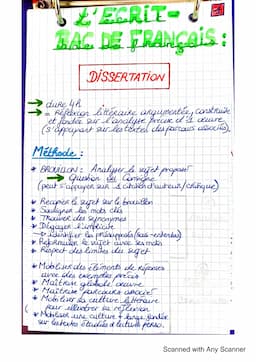 L'ECRIT-
BAC de FRANÇAIS :
DISSERTATION
→ dure 4h
→ = Réflexion littéraire argumentée, construite
et fondée sur l'analyse précise d'1 œuvre
(s'appuyant sur les textes du parcours associé).
Méthode :
* BROUILLON : Analyser le sujet proposé
→ Question ou Consigne
(peut s'appuyer sur 1 citation d'auteurs/critique)
* Recopier le sujet sur le brouillon
* Souligner les mots clés
* Trouver des synonymes
* Dégager l'implicite
→ identifier les présupposés
* Reformuler le sujet avec ses mots
* Respect des limites du sujet
* Mobiliser des éléments de réponses
avec des exemples précis
* Maîtrise globale œuvre
* Maîtrise parcours associé
* Mobiliser la culture littéraire
pour illustrer sa réflexion
* Mobiliser une culture + large fondée
sur les textes étudiés et lecture perso.
Scanned with Any Scanner